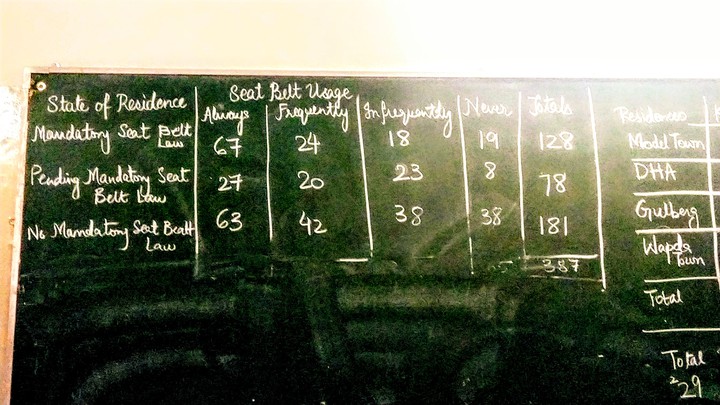 Seat Belt Usage
State of Residence Always Frequently Infrequently Never Totals
Mandatory Seat Belt Law 67 24 18 19 128
Pending Mandatory Seat Belt Law 27 20 23 8 78
No Mandatory Seat Bealt Law 63 42 38 38 181
387
Residences
Model Town
DHA
Gulberg
Wapda Town
Total
Total
229